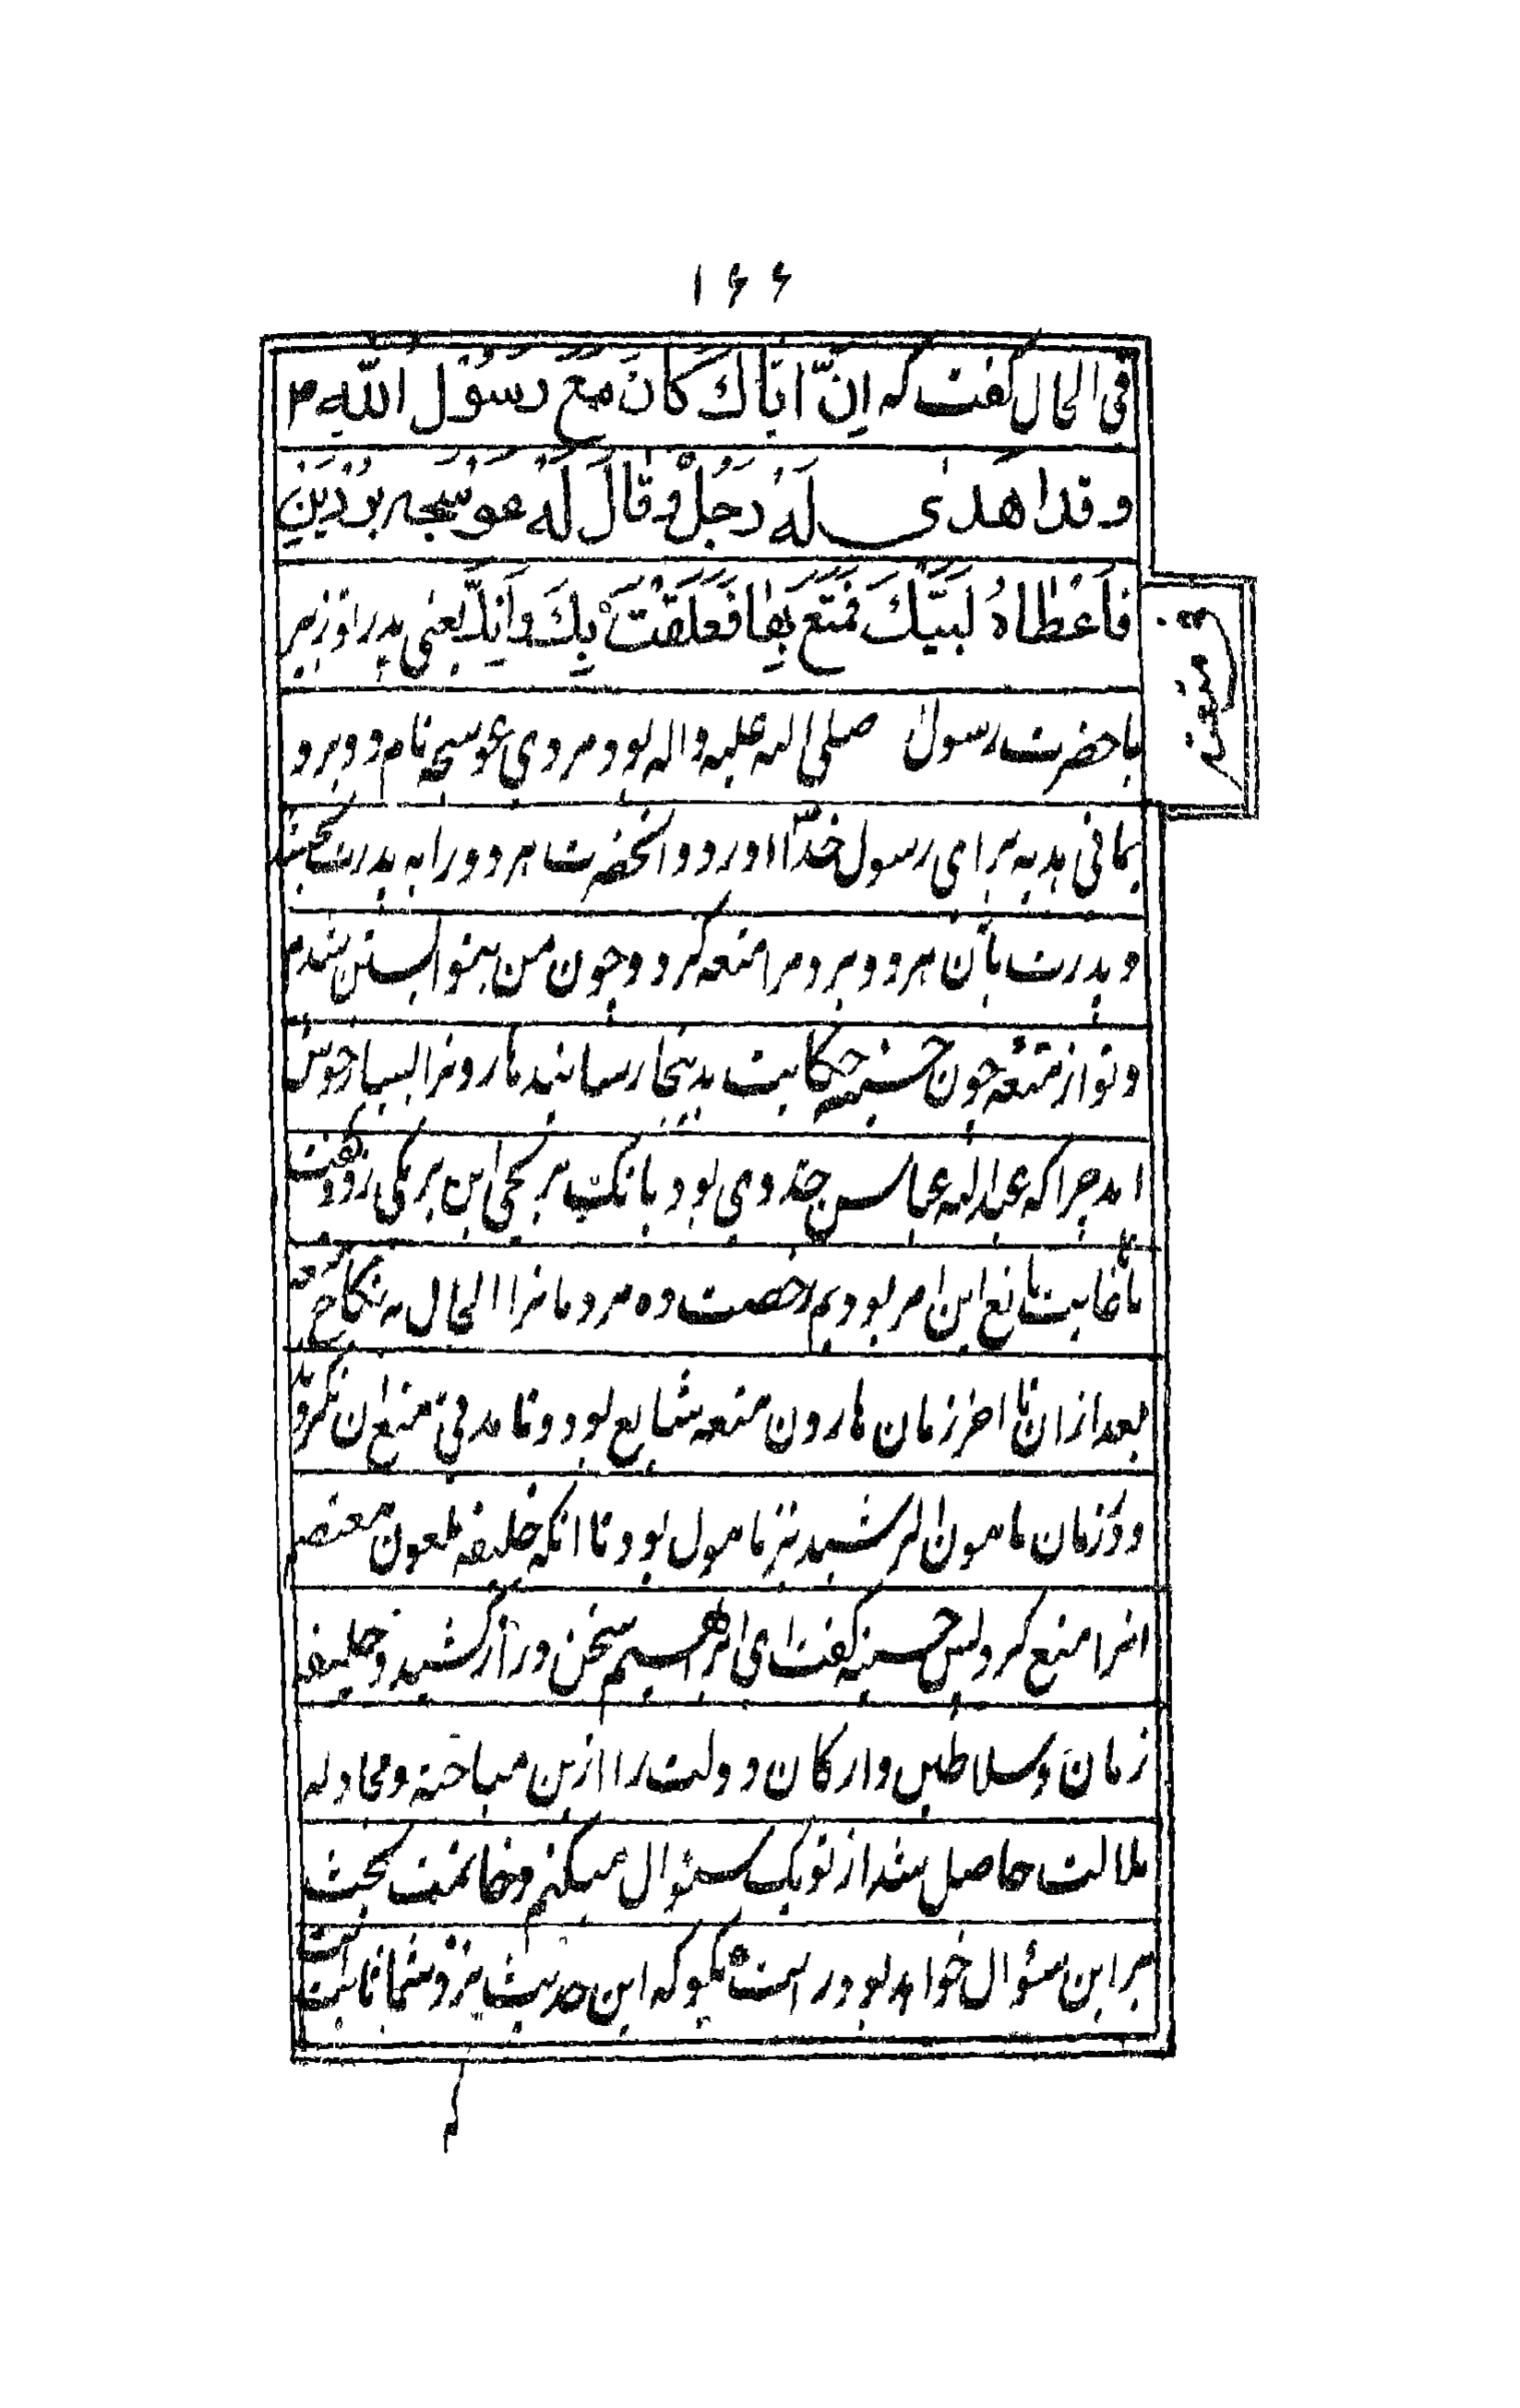 ۱۶۶
فی الحال گفت که اِنَّ اَبَاكَ كَانَ مَعَ رَسُوْلِ اللّٰهِ م
و قد اهدٰی لَهُ رَجُلٌ وَ قٰالَ لَهُ عَوْسَجه بُرْدَیْنِ
فَاَعْطٰاهُ فَمَتَّعَ بِهٰا فَعَلَقَتْ بِكَ یعنی پدر تو زبیر
با حضرت رسول صلی الله علیه واله بود مردی عوسجه نام دو برد
یمانی هدیه برای رسول خدا اورد و انحضرت هر دو را به پدرت بخشید
و پدرت بآن هر دو برد مرا متعه کرد و چون من بتو ابستن شدم
و تو از متعه چون حسنیه حکایت بدینجا رسانید هارونرا بسیار خوش
امد چرا که عبدالله عباس جد وی بود بانک بر یحیی ابن برمکی زد و گفت
تا غایت مانع این امر بودیم رخصت ده مردمانرا الحال به نکاح متعه
بعد از ان تا اخر زمان هارون متعه شایع بود و تا مدتی منع ان نکردند
و در زمان مامون الرشید نیز مامول بود تا انکه خلیفه ملعون معتصم
انرا منع کرد پس حسنیه گفت ای ابراهیم سخن دراز کشید و خلیفه
زمان و سلاطین و ارکان دولت را ازین مباحثه و مجادله
ملالت حاصل شد از تو یک سئوال میکنم و خاتمت بحث
بر این سئوال خواهد بود راست بگو که این حدیث نزد شما ثابت است